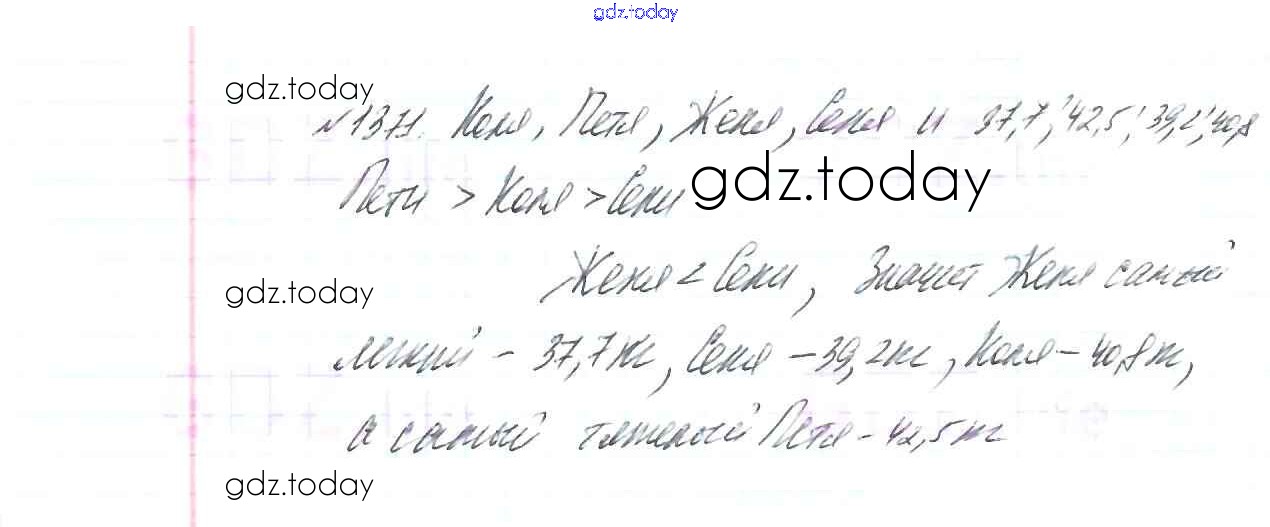 gdz.today
gdz.today
№1371. Коля, Петя, Женя, Сеня и 37,7; 42,5; 39,2; 40,8
Пети > Коля > Сени
gdz.today
Женя < Сени, Значит Женя самый
gdz.today
легкий - 37,7кг, Сеня - 39,2кг, Коля - 40,8кг,
а самый тяжелый Петя - 42,5кг
gdz.today